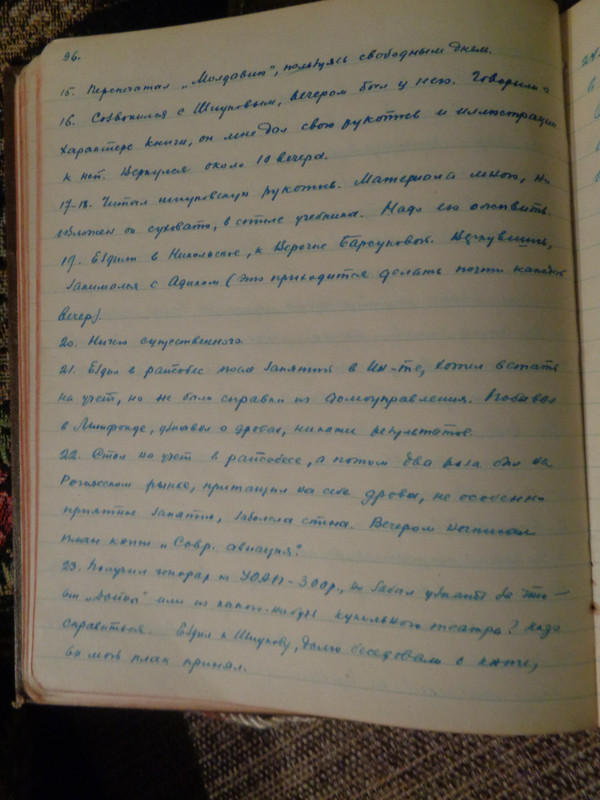 96.
15. Перепечатал „Молдавию", пользуясь свободным днем.
16. Созвонился с Шиуковым, вечером был у него. Говорили о
характере книги, он мне дал свою рукопись и иллюстрации
к ней. Вернулся около 10 вечера.
17-18. Читал шиуковскую рукопись. Материала много, но
изложен он суховато, в стиле учебника. Надо его оживить.
19. Ездил в Никольское, к Верочке Барсуковой. Вернувшись,
занимался с Адиком (это приходится делать почти каждый
вечер).
20. Ничего существенного.
21. Ездил в райсобес после занятий в Ин-те, хотел встать
на учет, но не было справки из домоуправления. Побывал
в Литфонде, узнавал о дровах, никаких результатов.
22. Стал на учет в райсобесе, а потом два раза был на
Рогожском рынке, притащил на себе дрова, не особенно
приятное занятие, заболела спина. Вечером написал
план книги „Совр. авиация".
23. Получил гонорар из УОАП - 300р., но забыл узнать за что —
от или из какого-нибудь кукольного театра? Надо
справиться. Ездил к Шиукову, долго беседовали о книге,
он мой план принял.
24.
в